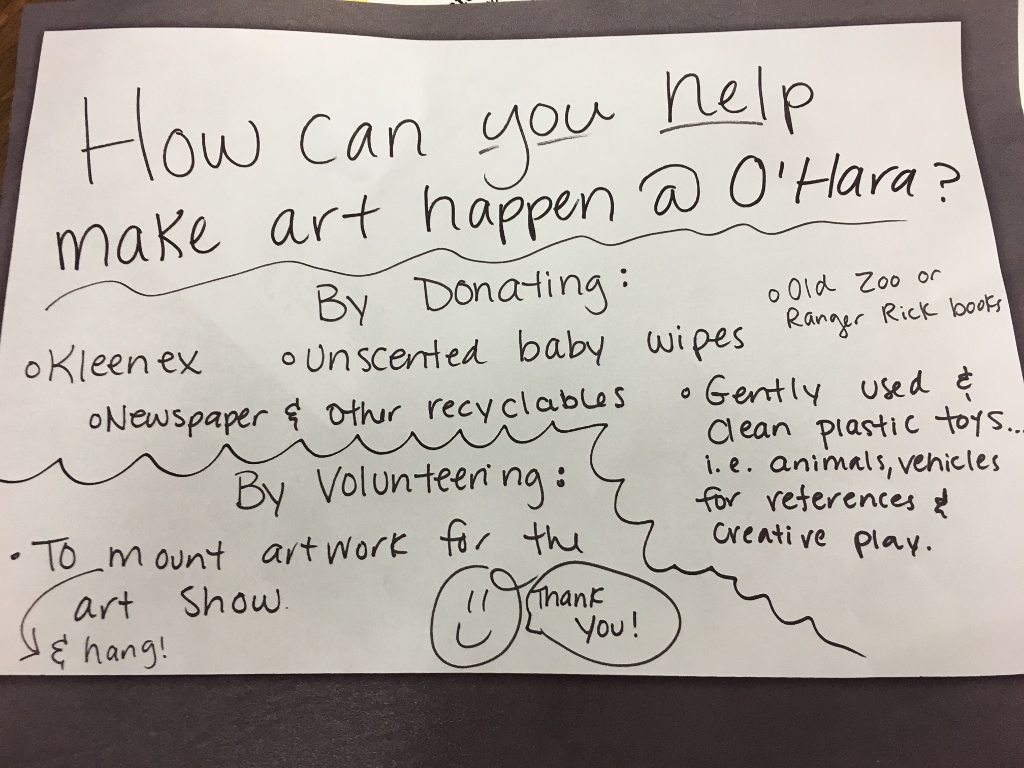 How can you help
make art happen @ O'Hara?
By Donating:
o Kleenex
o Unscented baby wipes
o Old Zoo or
Ranger Rick books
o Newspaper & other recyclables
o Gently used &
clean plastic toys...
i.e. animals, vehicles
for references &
creative play.
By Volunteering:
• To mount artwork for the
art show.
& hang!
Thank
You!